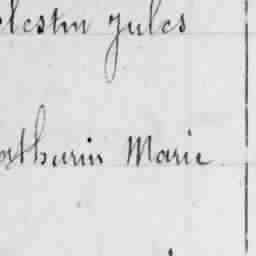 elestin Jules
athurin Marie